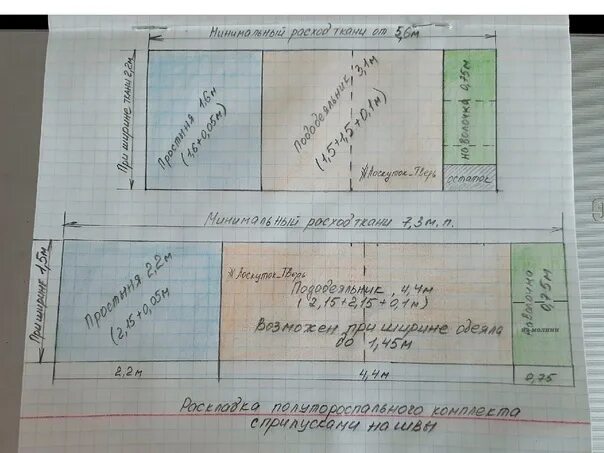 Минимальный расход ткани от 5,6м
При ширине ткани 2,2м
Простыня 1,6м
(1,6+0,05м)
Пододеяльник 3,1м
(1,5+1,5+0,1м)
Ж Лоскуток_Тверь
наволочка 0,75м
остаток
Минимальный расход ткани 7,3м.п.
При ширине 1,5м
Простыня 2,2м
(2,15+0,05м
Ж Лоскуток_Тверь
Пододеяльник 4,4м
(2,15+2,15+0,1м)
Возможен при ширине одеяла
до 1,45м
наволочка
0,75м
на молнии
2,2м
4,4м
0,75
Раскладка полутороспального комплекта
с припусками на швы